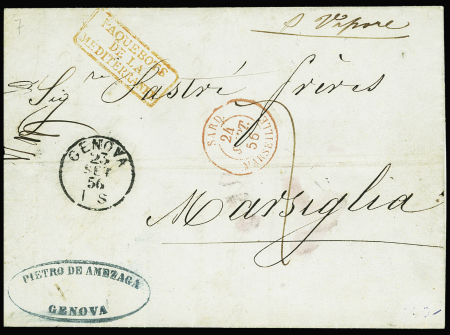 p Vapore
PAQUEBOTS
DE LA
MEDITERRANEE
Sig.re Pastré frères
SARD.
24
SEPT.
56
MARSEILLE
2
GENOVA
23
SET
56
1 S
Marsiglia
PIETRO DE AMEZAGA
GENOVA